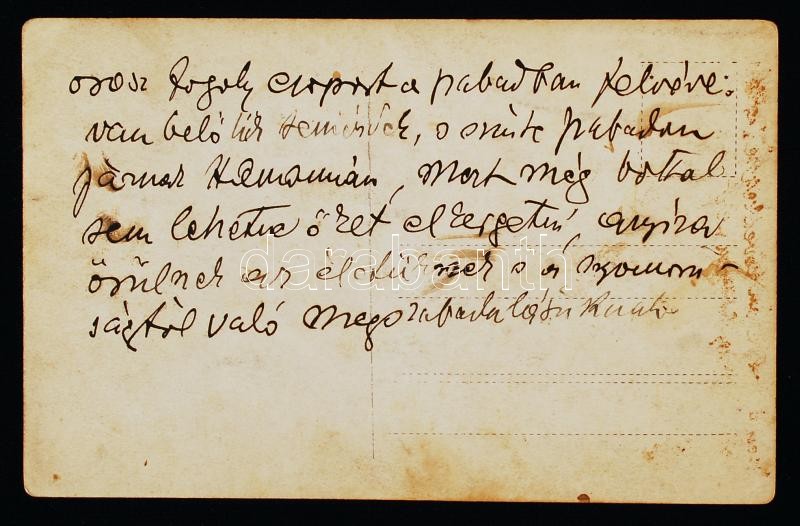 orosz fogoly csoport a szabadban felvéve.
van belőlük temérdek, s szinte szabadon
járnak kelmomián, mert még bottal
sem lehetne őket elkergetni, annyira
örülnek az életüknek s a nyomorú-
ságtól való megszabadulásuknak
darabanth